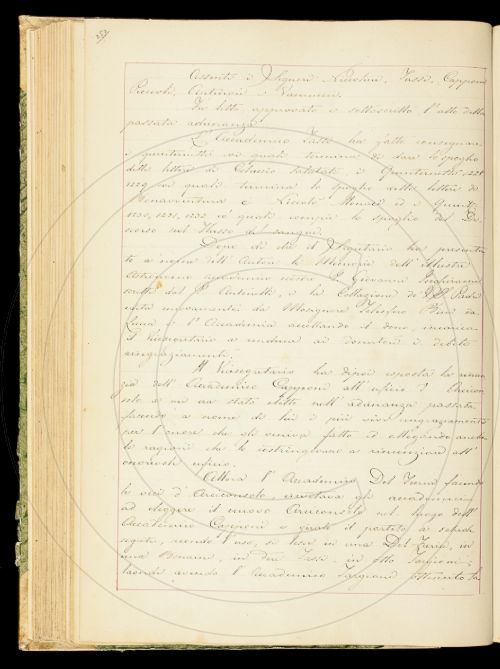 257
Assenti i Signori Niccolini, Tassi, Capponi
Piccioli, Antinori e Vannucci.
Fu letto approvato e sottoscritto l'atto della
passata adunanza.
L'Accademico Tassi ha fatto consegnare
i quinternetti coi quali termina di dare lo spoglio
delle lettere di
coi quali termina lo spoglio delle lettere di
Bonaventura e ed i
1230, 1231, 1232 coi quali compie lo spoglio del
sul Flusso di sangue.
Dopo di ciò il Segretario ha presenta-
to a nome dell'Autore le Memorie dell'illustre
Astronomo accademico nostro P. Giovanni Inghirami
scritte dal P. Antonelli, e la Collezione de' SS. Padri
da Monsignor Telesforo Bini da
Lucca e l'Accademia accettando il dono, incarica
il Segretario a rendere ai donatori i debiti
ringraziamenti.
Il Vicesegretario ha dipoi esposta la renun-
zia dell'Accademico Capponi all'ufizio d'Arcicon-
solo a cui era stato eletto nell'adunanza passata
facendo a nome di lui i più vivi ringraziamenti
per l'onore che gli veniva fatto ed allegando anche
le ragioni che lo costringevano a rinunziare all'
onorevole ufizio.
Allora l'Accademico Del Furia, facendo
le veci d'Arciconsolo, invitava gli accademici
ad eleggere il nuovo Arciconsolo nel luogo dell'
Accademico Capponi e girato il partito a schede
segrete, secondo l'uso, si lesse in una Del Furia, in
una Becchi, in due Tassi, in otto Targioni;
laonde avendo l'Accademico Targioni ottenuto la